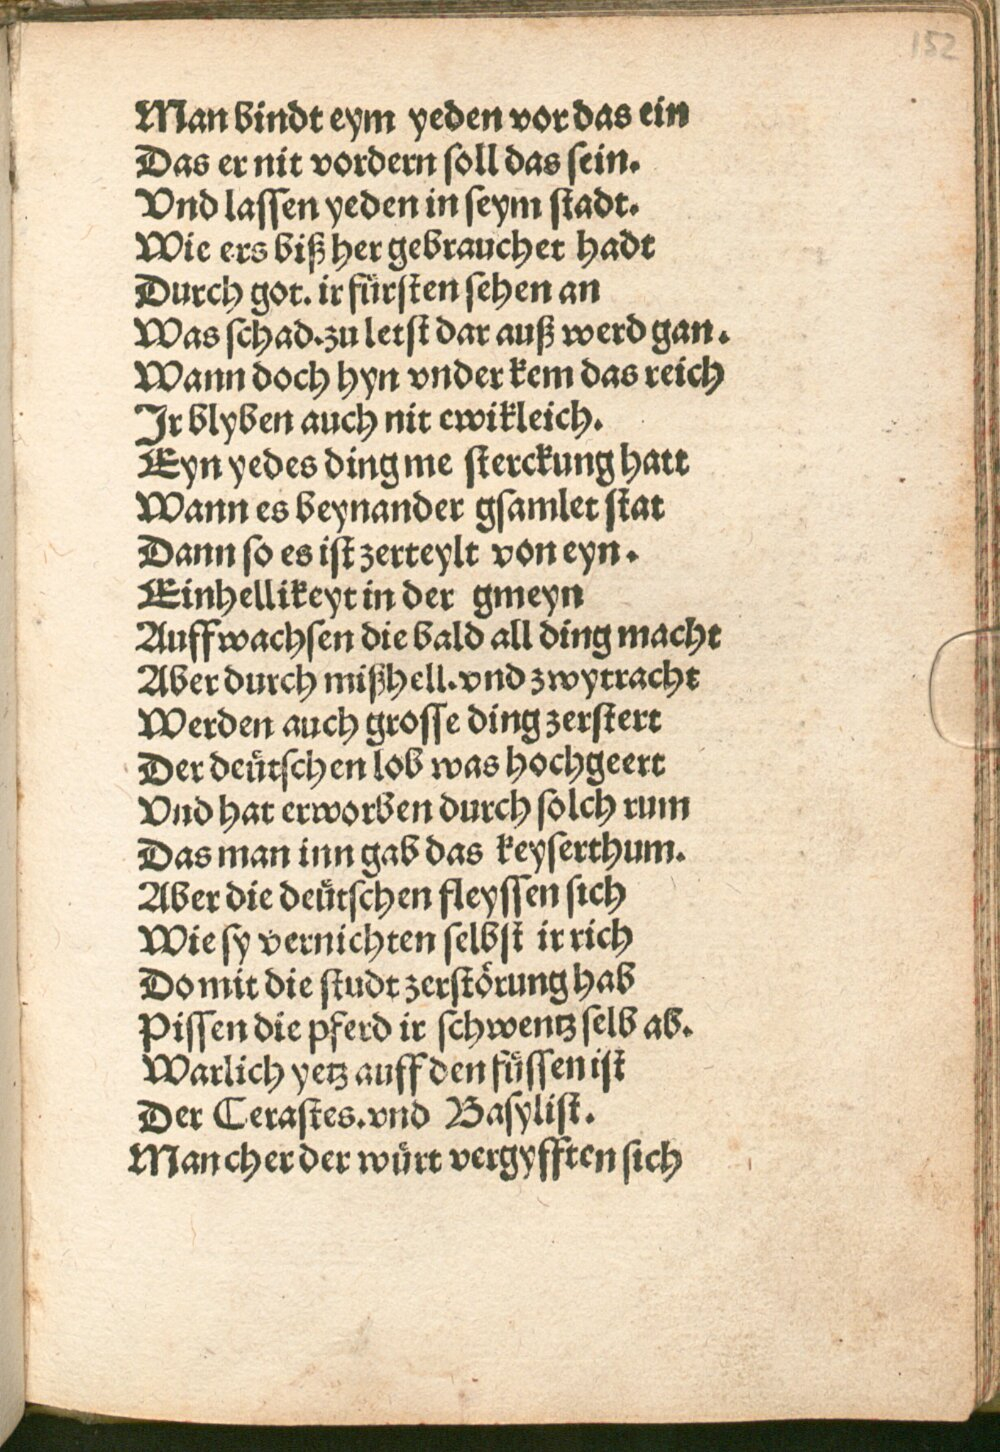 152
Man bindt eym yeden vor das ein
Das er nit vordern soll das sein.
Vnd lassen yeden in seym stadt.
Wie ers biß her gebrauchet hadt
Durch got. ir fürsten sehen an
Was schad. zu letst dar auß werd gan.
Wann doch hyn vnder kem das reich
Jr blyben auch nit ewikleich.
Eyn yedes ding me sterckung hatt
Wann es beynander gsamlet stat
Dann so es ist zerteylt von eyn.
Einhellikeyt in der gmeyn
Auffwachsen die bald all ding macht
Aber durch mißhell. vnd zwytracht
Werden auch grosse ding zerstert
Der deütschen lob was hochgeert
Vnd hat erworben durch solch rum
Das man inn gab das keyserthum.
Aber die deütschen fleyssen sich
Wie sy vernichten selbst ir rich
Do mit die studt zerstörung hab
Pissen die pferd ir schwentz selb ab.
Warlich yetz auff den füssen ist
Der Cerastes. vnd Basylist.
Mancher der würt vergyfften sich